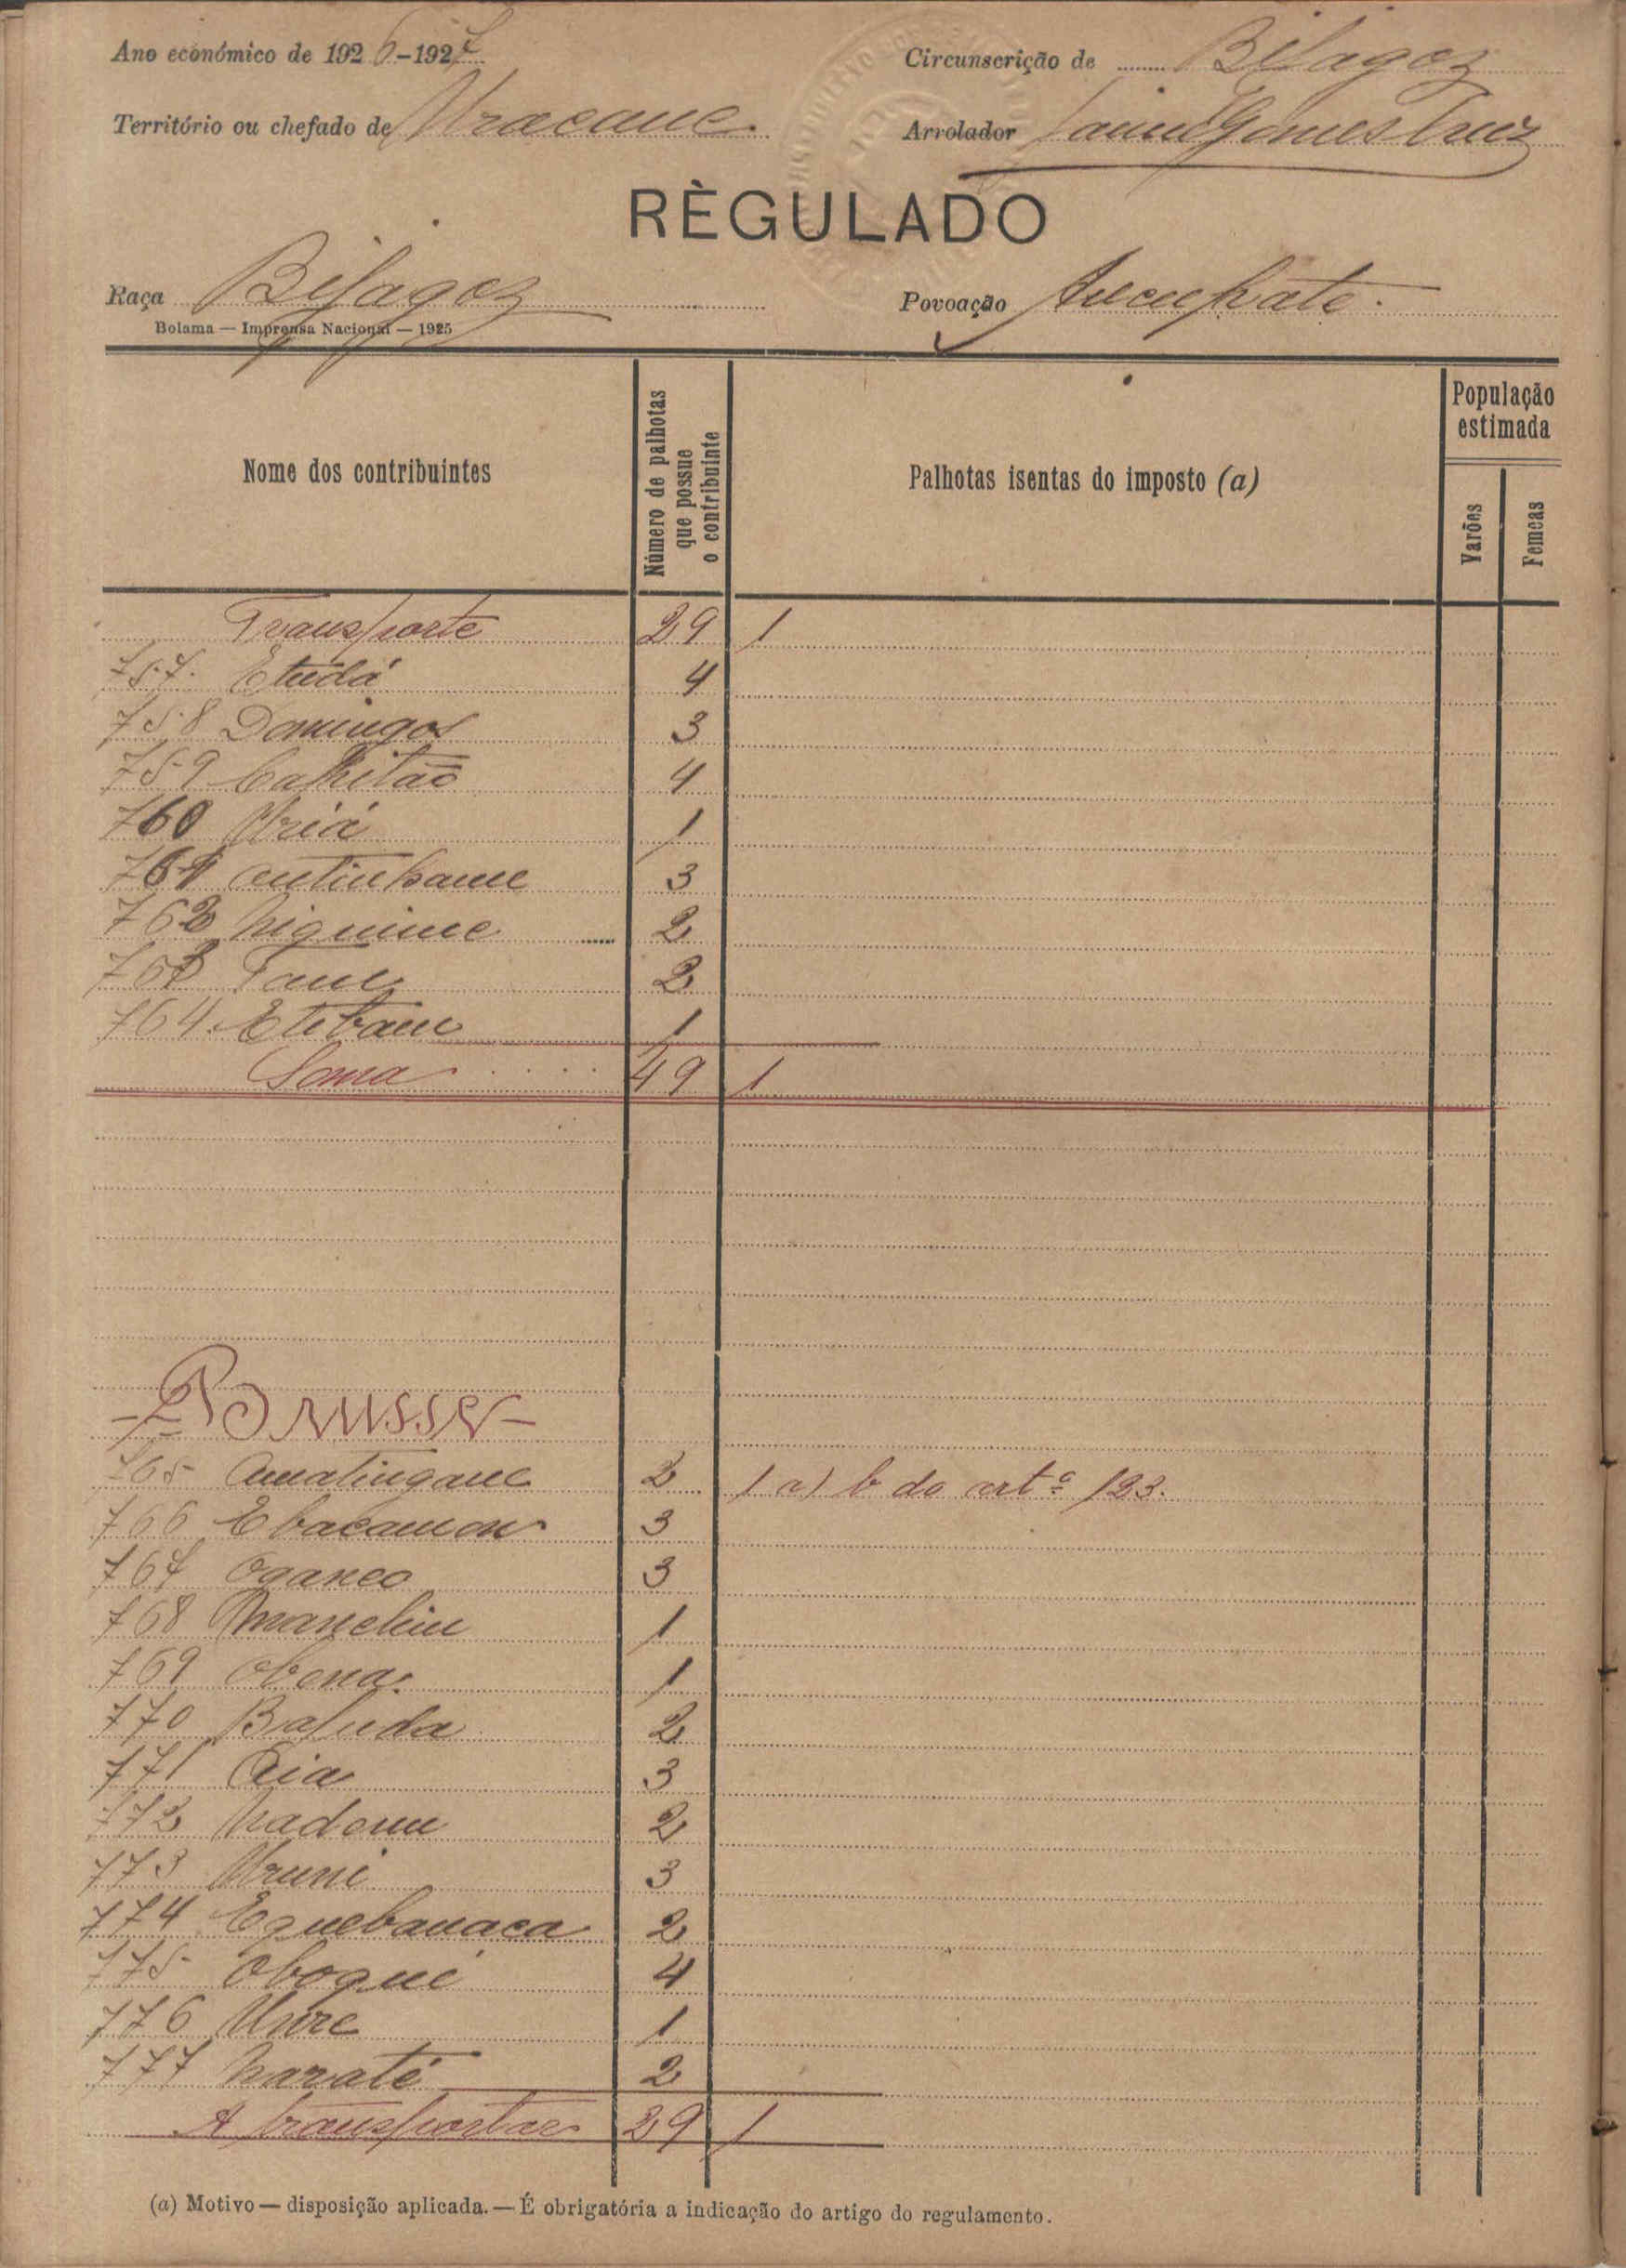 Ano económico de 1926-1927
Circunscrição de Bijagoz
Território ou chefado de Uracane
Arrolador Gomes
RÈGULADO
Raça Bijagoz
Povoação
Bolama — Imprensa Nacional — 1925
Nome dos contribuintes
Número de palhotas que possue o contribuinte
Palhotas isentas do imposto (a)
População estimada
Varões
Femeas
Transporte 29 1
757. Etudá 4
758 Domingos 3
759 Capitão 4
760 Uriá 1
761 3
762 Niquime 2
763 2
764 1
Soma 49 1
-Brusse-
765 Amatingane 2 1 a) b do artº 123.
766 Ebacamon 3
767 Oganco 3
768 1
769 Obona 1
770 Bajuda 2
771 Cia 3
772 Nadomi 2
773 Uruni 3
774 Equebanaca 2
775 Oboqué 4
776 1
777 Naraté 2
A transportar 29 1
(a) Motivo — disposição aplicada. — É obrigatória a indicação do artigo do regulamento.